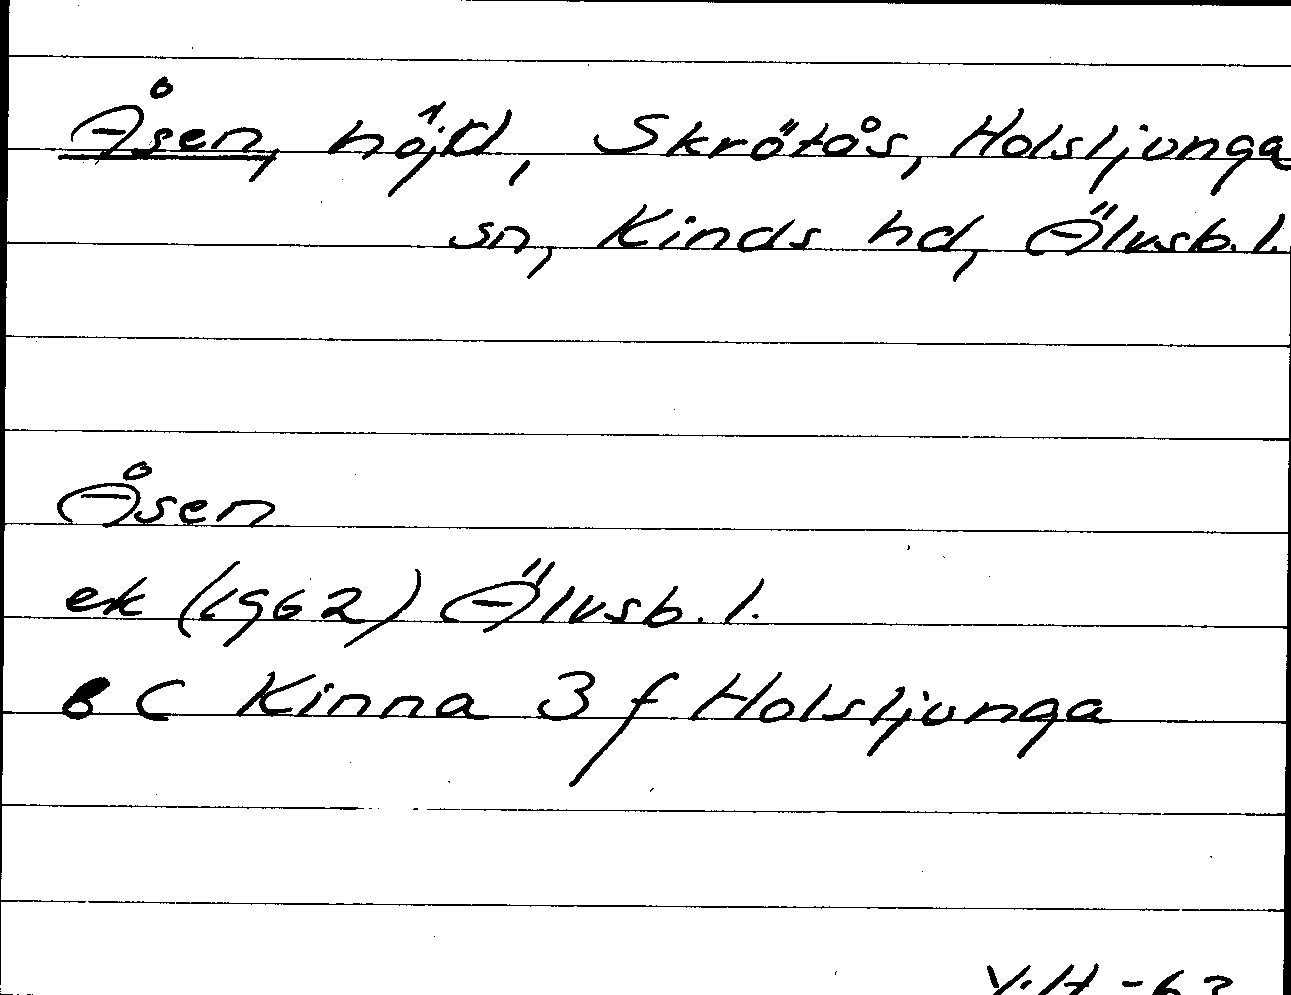 Åsen, höjd, Skrötås, Holsljunga
sn, Kinds hd, Älvsb. l.
Åsen
ek (1962) Älvsb. l.
8 C Kinna 3 f Holsljunga